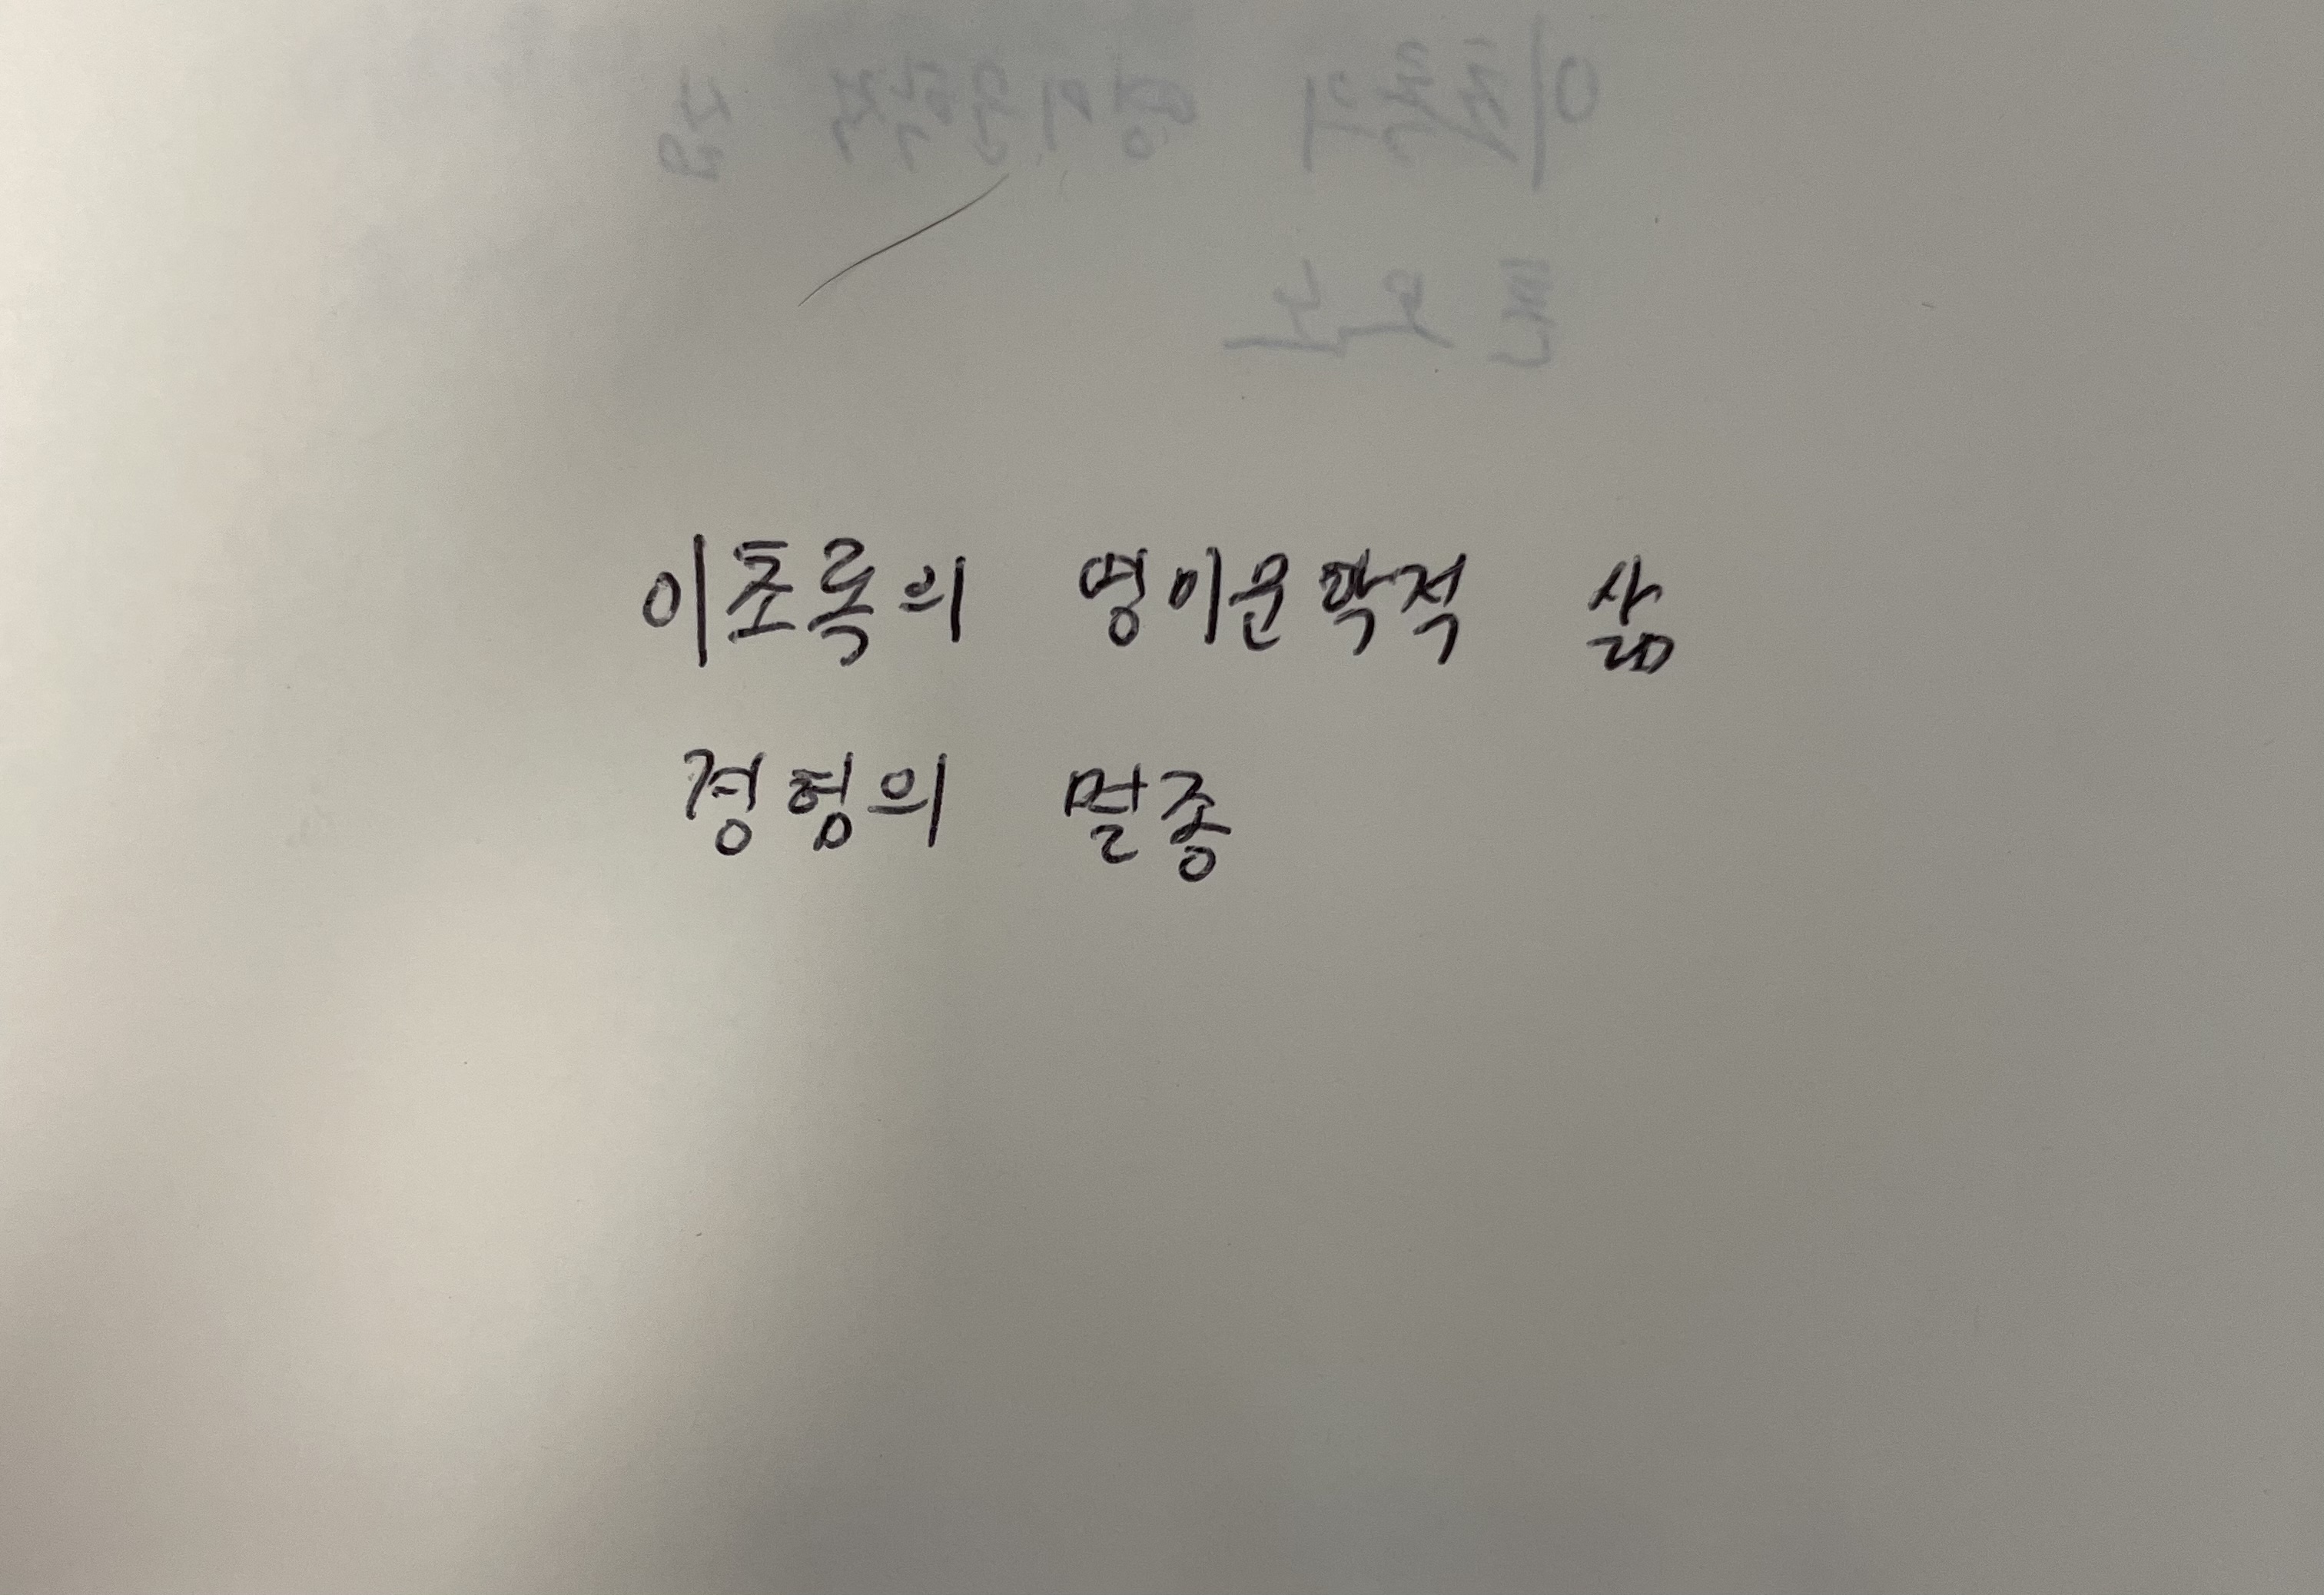 이초록의 영이운학적 삶
경험의 멸종